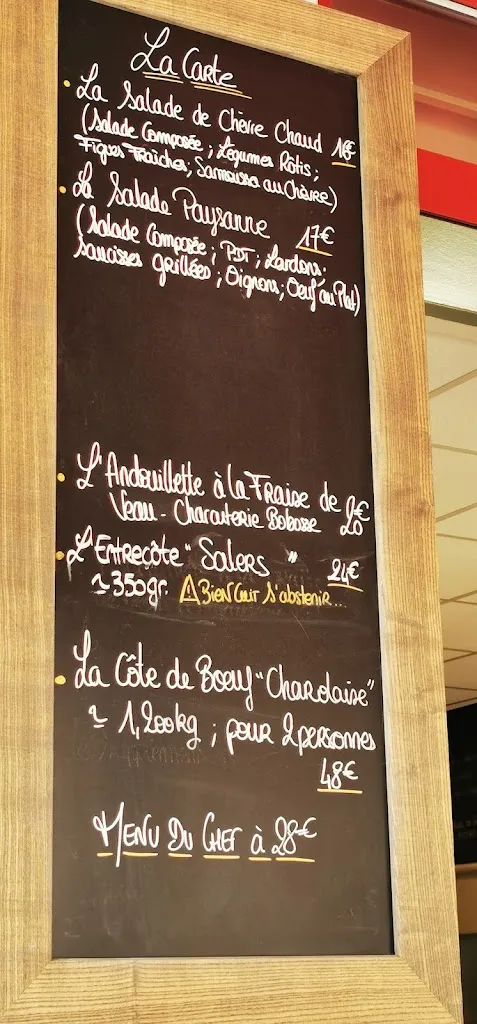 La Carte
La Salade de Chèvre Chaud 16€
(Salade Composée ; Légumes Rôtis ;
Figues Fraîches ; Samoussa au Chèvre)
La Salade Paysanne 17€
(Salade Composée ; PDT ; Lardons ;
saucisses grillées ; Oignons ; Oeuf au Plat)
L'Andouillette à la Fraise de 20€
Veau - Charcuterie Bobosse
L'Entrecôte "Salers" 24€
≈ 350gr. ⚠ Bien Cuit s'abstenir...
La Côte de Boeuf "Charolaise"
≈ 1,200kg ; pour 2 personnes
48€
Menu Du Chef à 28€